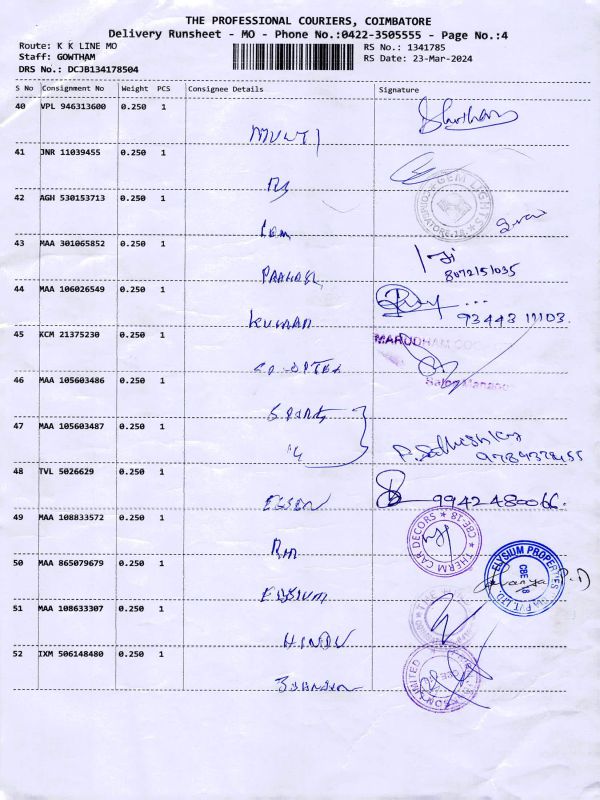 THE PROFESSIONAL COURIERS, COIMBATORE
Delivery Runsheet - MO - Phone No.:0422-3505555 - Page No.:4
Route: K K LINE MO
RS No.: 1341785
Staff: GOWTHAM
RS Date: 23-Mar-2024
DRS No.: DCJB134178504
S No Consignment No Weight PCS Consignee Details Signature
40 VPL 946313600 0.250 1
MULTI
41 JNR 11039455 0.250 1
42 AGH 530153713 0.250 1
GEM LIGHTS
COIMBATORE
43 MAA 301065852 0.250 1
8072151035
44 MAA 106026549 0.250 1
KUMARAN
93443 11103.
45 KCM 21375230 0.250 1
MARUDHAM
Sales Manager
46 MAA 105603486 0.250 1
47 MAA 105603487 0.250 1
48 TVL 5026629 0.250 1
9942480066.
49 MAA 108833572 0.250 1
THERM CAR DECORS * CBE-18 *
50 MAA 865079679 0.250 1
ELYSIUM
ELYSIUM PROPERTIES INDIA PVT LTD.
CBE
18
51 MAA 108633307 0.250 1
HINDU
52 IXM 506148480 0.250 1
LIMITED